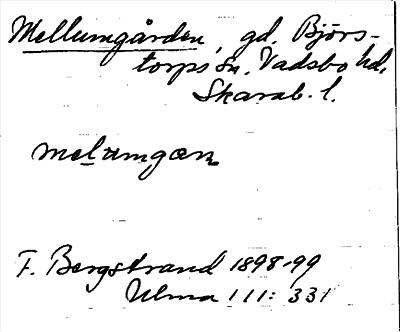 Mellumgården, gd. Björs-
torps sn. Vadsbo hd.
Skarab. l.
melumgæn
F. Bergstrand 1898-99
Ulma 111: 331